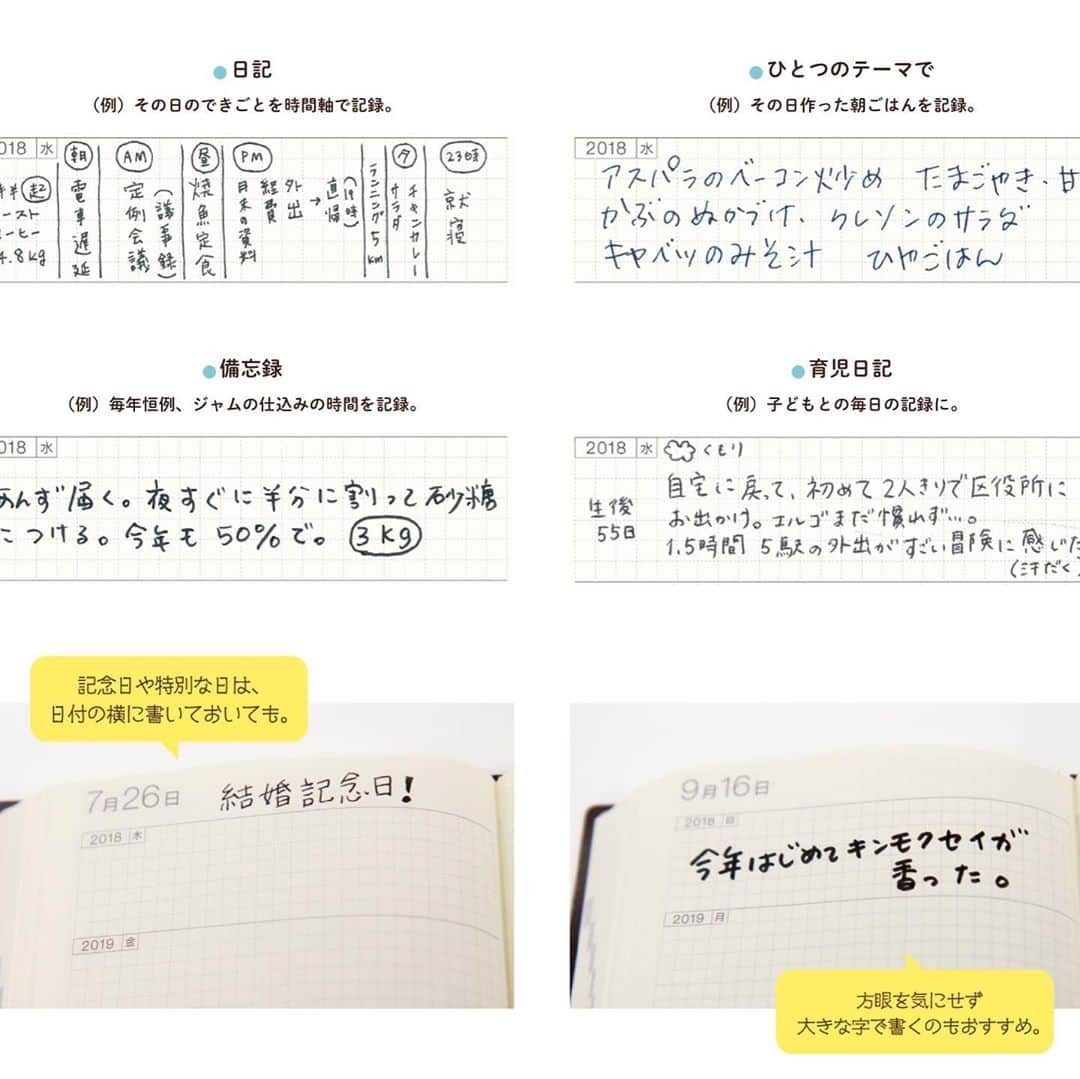 日記
(例)その日のできごとを時間軸で記録。
018 水
起
ースト
ーヒー
4.8kg
朝
電車遅延
AM
定例会議
(議事録)
昼
焼魚定食
PM
月末の資料
経費
外出
→直帰
(19時)
ランニング5km
夕
サラダ
チキンカレー
23時
就寝
ひとつのテーマで
(例)その日作った朝ごはんを記録。
2018 水
アスパラのベーコン炒め たまごやき・甘
かぶのぬかづけ、クレソンのサラダ
キャベツのみそ汁 ひやごはん
備忘録
(例)毎年恒例、ジャムの仕込みの時間を記録。
018 水
あんず届く。夜すぐに半分に割って砂糖
につける。今年も50%で。3kg
育児日記
(例)子どもとの毎日の記録に。
2018 水 くもり
生後
55日
自宅に戻って、初めて2人きりで区役所に
お出かけ。エルゴまだ慣れず…。
1.5時間 5駅の外出がすごい冒険に感じた
(汗だく)
記念日や特別な日は、
日付の横に書いておいても。
7月26日 結婚記念日!
2018 木
2019 金
9月16日
2018 日
今年はじめてキンモクセイが
香った。
2019 月
方眼を気にせず
大きな字で書くのもおすすめ。